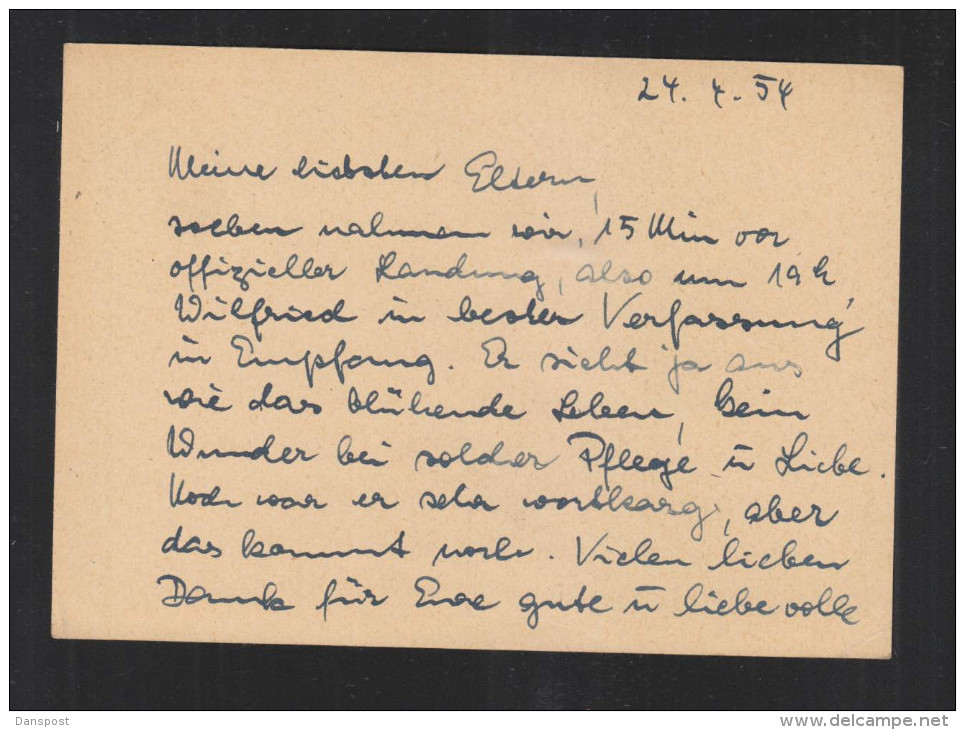 24. 4. 54
Meine liebsten Eltern,
soeben nahmen wir, 15 Min vor
offizieller Landung, also um 19 h,
Wilfried in bester Verfassung
in Empfang. Er sieht ja aus
wie das blühende Leben, kein
Wunder bei solcher Pflege u Liebe.
Noch war er sehr wortkarg, aber
das kommt noch. Vielen lieben
Dank für Eure gute u liebevolle
Danspost
www.delcampe.net